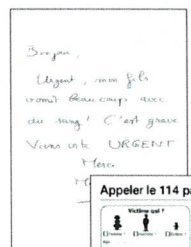 Bonjour,
Urgent, mon fils
vomit beaucoup avec
du sang ! C'est grave
Viens vite URGENT
Merci
Appeler le 114 pa
Victime qui ?